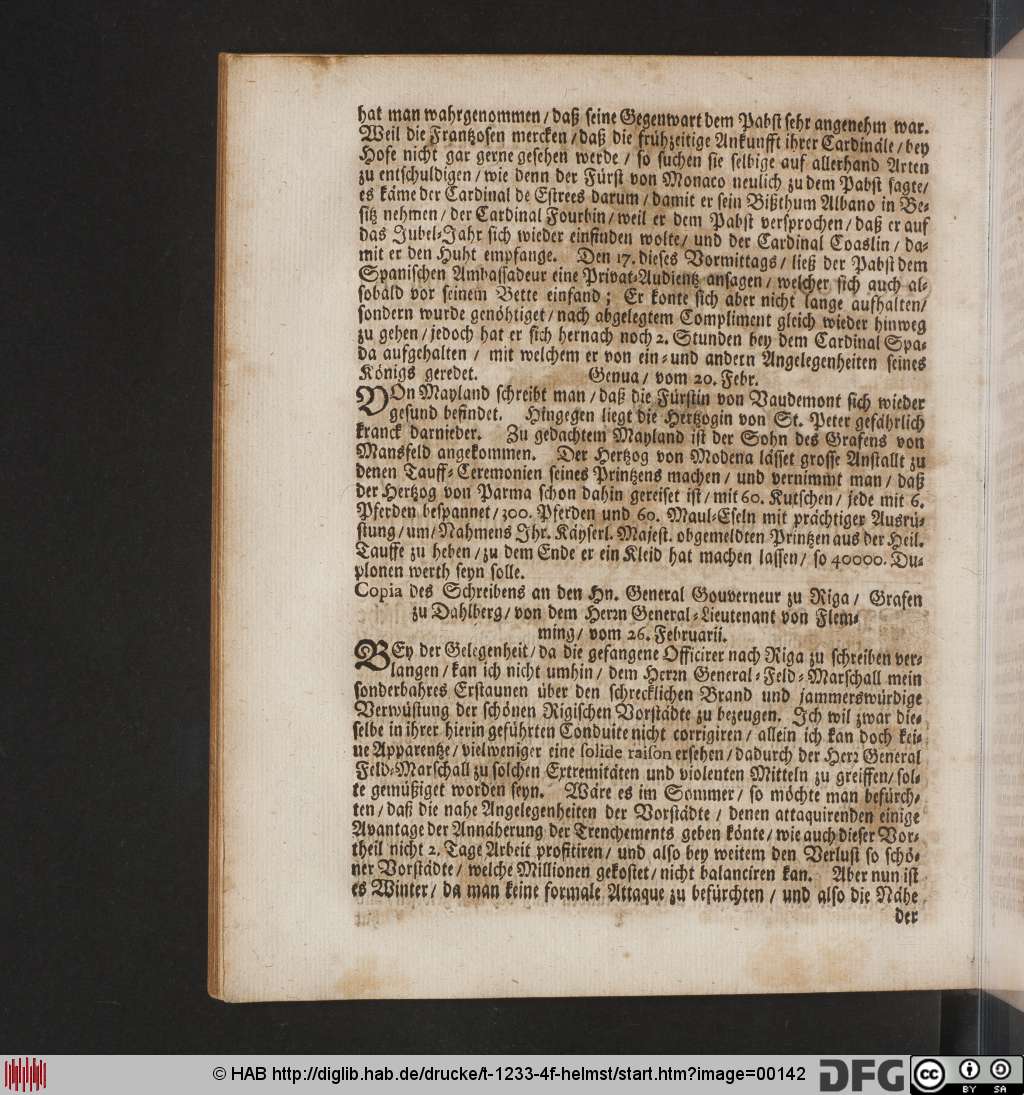 hat man wahrgenommen / daß seine Gegenwart dem Pabst sehr angenehm war.
Weil die Frantzosen mercken / daß die frühzeitige Ankunfft ihrer Cardinäle / bey
Hofe nicht gar gerne gesehen werde / so suchen sie selbige auf allerhand Arten
zu entschuldigen / wie denn der Fürst von Monaco neulich zu dem Pabst sagte /
es käme der Cardinal de Estrees darum / damit er sein Bißthum Albano in Be-
sitz nehmen / der Cardinal Fourbin / weil er dem Pabst versprochen / daß er auf
das Jubel-Jahr sich wieder einfinden wolte / und der Cardinal Coaslin / da-
mit er den Huht empfange. Den 17. dieses Vormittags / ließ der Pabst dem
Spanischen Ambassadeur eine Privat-Audientz ansagen / welcher sich auch al-
sobald vor seinem Bette einfand ; Er konte sich aber nicht lange aufhalten /
sondern wurde genöhtiget / nach abgelegtem Compliment gleich wieder hinweg
zu gehen / jedoch hat er sich hernach noch 2. Stunden bey dem Cardinal Spa-
da aufgehalten / mit welchem er von ein- und andern Angelegenheiten seines
Königs geredet. Genua / vom 20. Febr.
VOn Mayland schreibt man / daß die Fürstin von Vaudemont sich wieder
gesund befindet. Hingegen liegt die Hertzogin von St. Peter gefährlich
kranck darnieder. Zu gedachtem Mayland ist der Sohn des Grafens von
Mansfeld angekommen. Der Hertzog von Modena lässet grosse Anstallt zu
denen Tauff-Ceremonien seines Printzens machen / und vernimmt man / daß
der Hertzog von Parma schon dahin gereiset ist / mit 60. Kutschen / jede mit 6.
Pferden bespannet / 300. Pferden und 60. Maul-Eseln mit prächtiger Ausrü-
stung / um / Nahmens Ihr. Käyserl. Majest. obgemeldten Printzen aus der Heil.
Tauffe zu heben / zu dem Ende er ein Kleid hat machen lassen / so 40000. Du-
plonen werth seyn solle.
Copia des Schreibens an den Hn. General Gouverneur zu Riga / Grafen
zu Dahlberg / von dem Herrn General-Lieutenant von Flem-
ming / vom 26. Februarii.
BEy der Gelegenheit / da die gefangene Officirer nach Riga zu schreiben ver-
langen / kan ich nicht umhin / dem Herrn General-Feld-Marschall mein
sonderbahres Erstaunen über den schrecklichen Brand und jammerswürdige
Verwüstung der schönen Rigischen Vorstädte zu bezeugen. Ich wil zwar die-
selbe in ihrer hierin geführten Conduite nicht corrigiren / allein ich kan doch kei-
ne Apparentze / vielweniger eine solide raison ersehen / dadurch der Herr General
Feld-Marschall zu solchen Extremitäten und violenten Mitteln zu greiffen / sol-
te gemüßiget worden seyn. Wäre es im Sommer / so möchte man befürch-
ten / daß die nahe Angelegenheiten der Vorstädte / denen attaquirenden einige
Avantage der Annäherung der Trenchements geben könte / wie auch dieser Vor-
theil nicht 2. Tage Arbeit profitiren / und also bey weitem den Verlust so schö-
ner Vorstädte / welche Millionen gekostet / nicht balanciren kan. Aber nun ist
es Winter / da man keine formale Attaque zu befürchten / und also die Nähe
der
© HAB http://diglib.hab.de/drucke/t-1233-4f-helmst/start.htm?image=00142
DFG
cc
BY SA